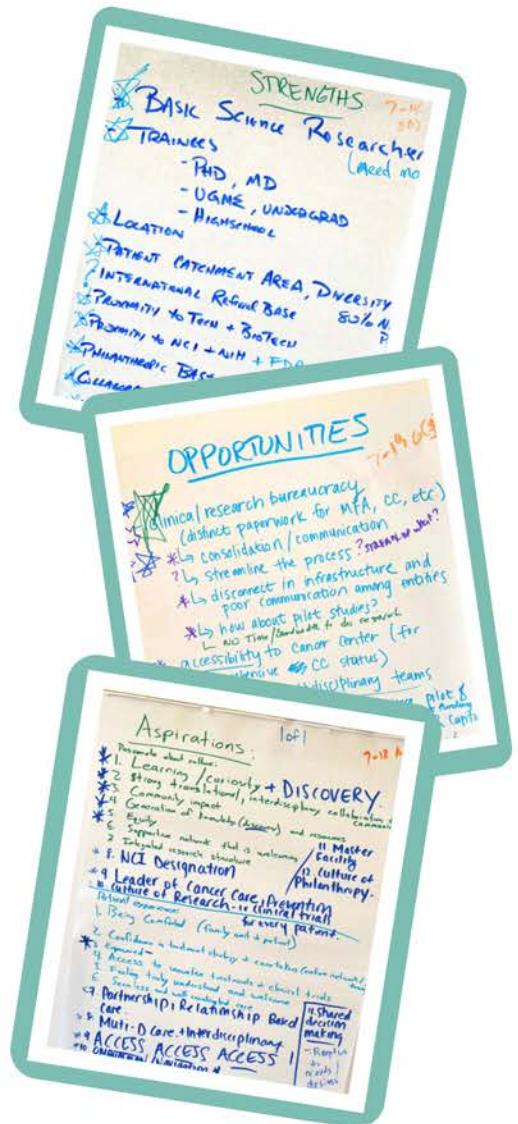 STRENGTHS
7-18
BASIC SCIENCE Researcher
(need mo
TRAINEES
- PHD, MD
- UGME, UNDERGRAD
- HIGHSCHOOL
LOCATION
PATIENT CATCHMENT AREA, DIVERSITY
80% N.
? INTERNATIONAL Referral BASE
P
PROXIMITY to TECH + BIOTECH
PROXIMITY to NCI + NIH + FDA
PHILANTHROPIC BASE
COLLABORA
OPPORTUNITIES
Clinical/research bureaucracy
(distinct paperwork for MFA, CC, etc)
* ↳ consolidation/communication
? ↳ streamline the process ? STREAMLINE what?
* ↳ disconnect in infrastructure and
poor communication among entities
* ↳ how about pilot studies?
↳ No Time/bandwidth to do research
* accessibility to Cancer Center (for
CC status)
disciplinary teams
pilot &
funding
Aspirations:
1 of 1
7-18
Passionate about culture:
* 1. Learning/curiosity + DISCOVERY.
* 2 Strong translational, interdisciplinary collaboration +
* 3 Community impact
* 4 Generation of knowledge (discovery) and resources
* 5 Equity
6 Supportive network that is welcoming
7 Integrated research structure
* 8. NCI Designation
11 Master
Facility
12 Culture of
Philanthropy.
* 9 Leader of Cancer Care, Prevention
10 Culture of Research - ie clinical trials
for every patient.
Patient experience:
1. Being Comforted (family unit + patient)
2. Confidence in treatment strategy +
* 3 Empowered
4 Access to innovative treatments + clinical trials
5 Feeling truly understood and welcome
6 Seamless and well-coordinated care
7 Partnership; Relationship Based
Care.
* 8 Multi-D care + Interdisciplinary
* 9 ACCESS ACCESS ACCESS !
* 10 Navigation
11. Shared
decision
making